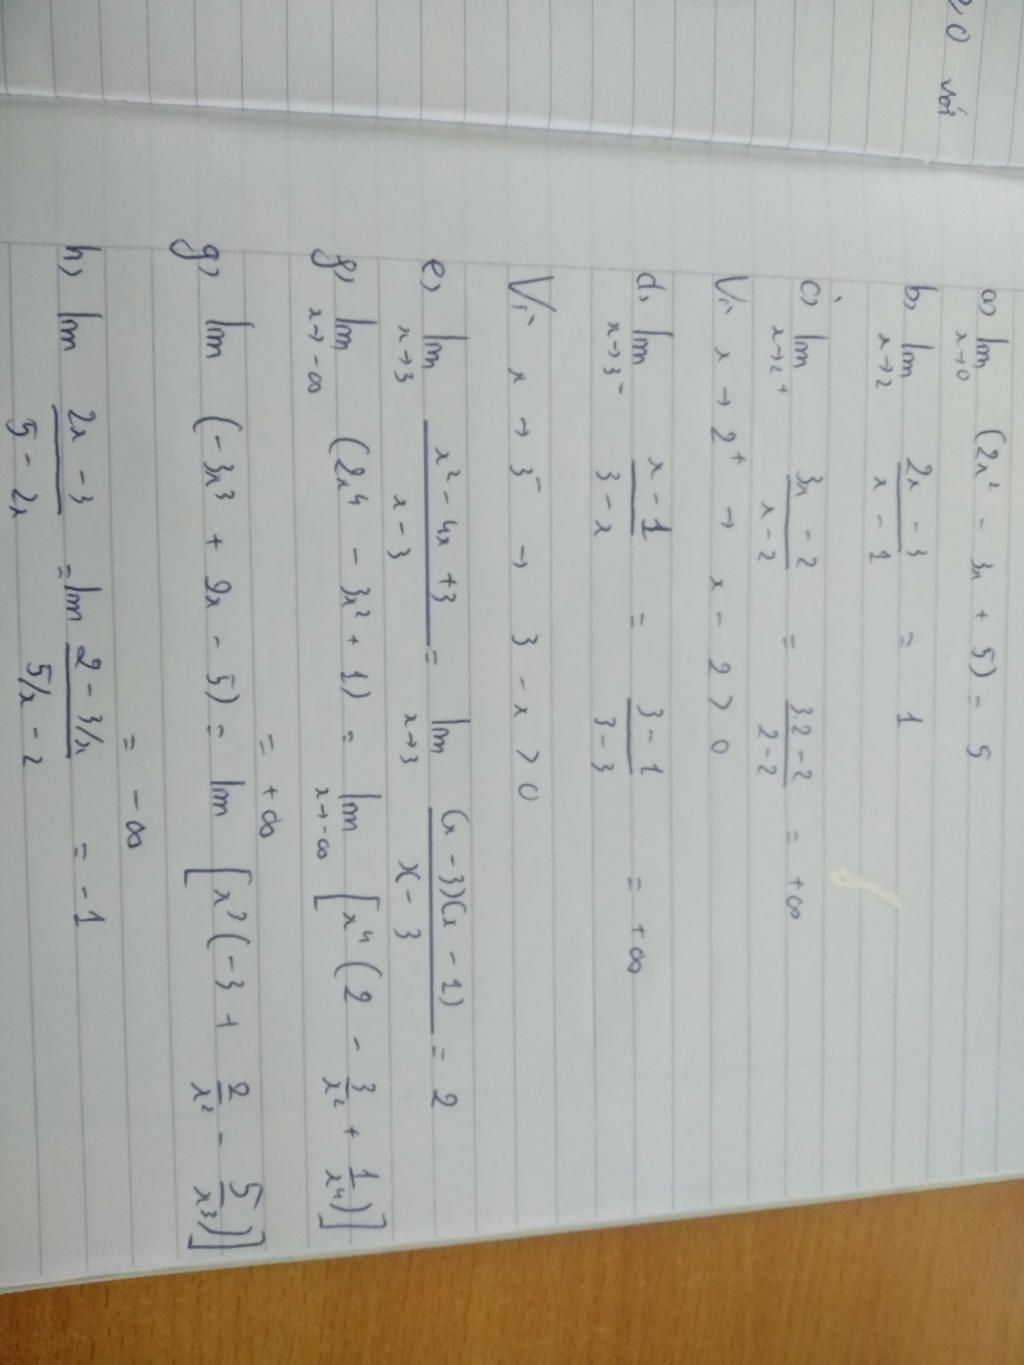 ≥ 0 với
a) lim x→0 (2x² - 3x + 5) = 5
b) lim x→2 (2x - 3)/(x - 1) = 1
c) lim x→2⁺ (3x - 2)/(x - 2) = (3.2 - 2)/(2 - 2) = +∞
Vì x → 2⁺ → x - 2 > 0
d) lim x→3⁻ (x - 1)/(3 - x) = (3 - 1)/(3 - 3) = +∞
Vì x → 3⁻ → 3 - x > 0
e) lim x→3 (x² - 4x + 3)/(x - 3) = lim x→3 (x - 3)(x - 1)/(x - 3) = 2
f) lim x→-∞ (2x⁴ - 3x² + 1) = lim x→-∞ [x⁴(2 - 3/x² + 1/x⁴)]
= +∞
g) lim (-3x³ + 2x - 5) = lim [x³(-3 + 2/x² - 5/x³)]
= -∞
h) lim (2x - 3)/(5 - 2x) = lim (2 - 3/x)/(5/x - 2) = -1